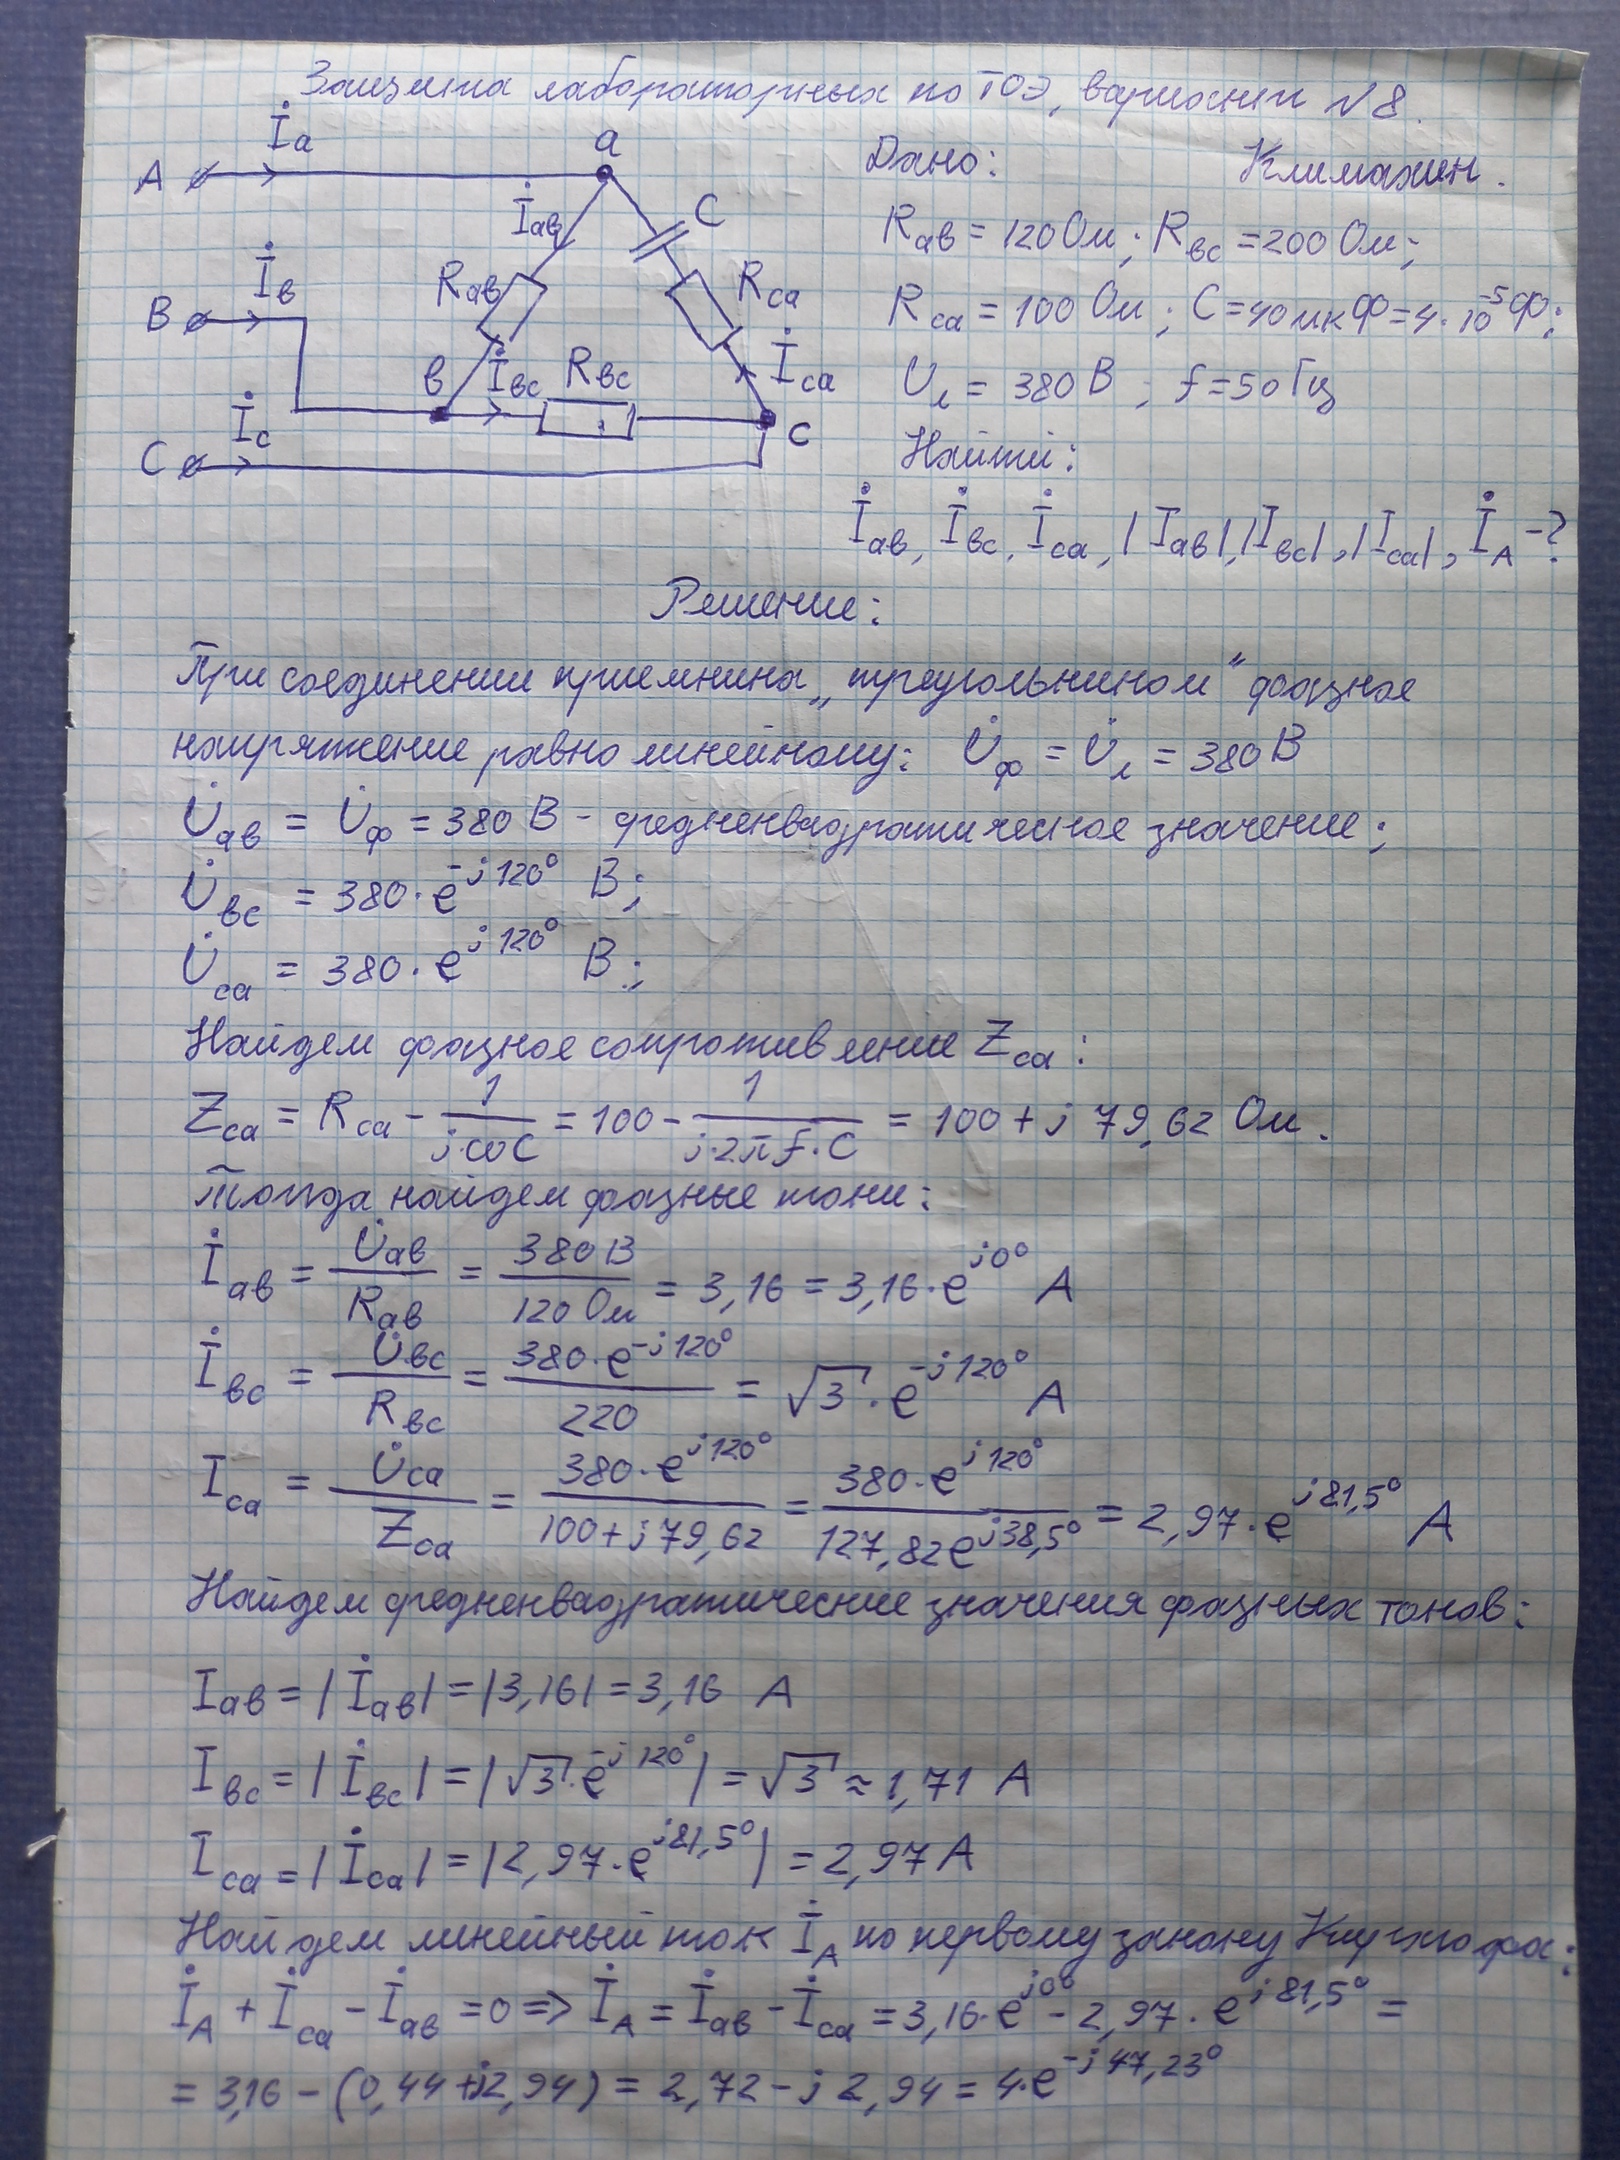 Защита лабораторных по ТОЭ, вариант №8.
Климахин.
A İa a
İав C
B İв
Rав Rса
в İвс Rвс İса
C İс с
Дано:
Rав = 120 Ом; Rвс = 200 Ом;
Rса = 100 Ом; C = 40 мкФ = 4·10⁻⁵ Ф;
Uл = 380 В; f = 50 Гц
Найти:
İав, İвс, İса, |Iав|, |Iвс|, |Iса|, İA - ?
Решение:
При соединении приемника „треугольником“ фазное
напряжение равно линейному: U̇ф = U̇л = 380 В
U̇ав = U̇ф = 380 В - среднеквадратическое значение;
U̇вс = 380·e^(-j120°) В;
U̇са = 380·e^(j120°) В;
Найдем фазное сопротивление Zса:
Zса = Rса - 1/(j·ωC) = 100 - 1/(j·2πf·C) = 100 + j 79,62 Ом.
Тогда найдем фазные токи:
İав = U̇ав/Rав = 380 В/120 Ом = 3,16 = 3,16·e^(j0°) А
İвс = U̇вс/Rвс = 380·e^(-j120°)/220 = √3·e^(-j120°) А
Iса = U̇са/Zса = 380·e^(j120°)/(100+j79,62) = 380·e^(j120°)/(127,82e^(j38,5°)) = 2,97·e^(j81,5°) А
Найдем среднеквадратические значения фазных токов:
Iав = |İав| = |3,16| = 3,16 А
Iвс = |İвс| = |√3·e^(-j120°)| = √3 ≈ 1,71 А
Iса = |İса| = |2,97·e^(j81,5°)| = 2,97 А
Найдем линейный ток İA по первому закону Кирхгофа:
İA + İса - İав = 0 => İA = İав - İса = 3,16·e^(j0°) - 2,97·e^(j81,5°) =
= 3,16 - (0,44 + j2,94) = 2,72 - j 2,94 = 4·e^(-j47,23°)